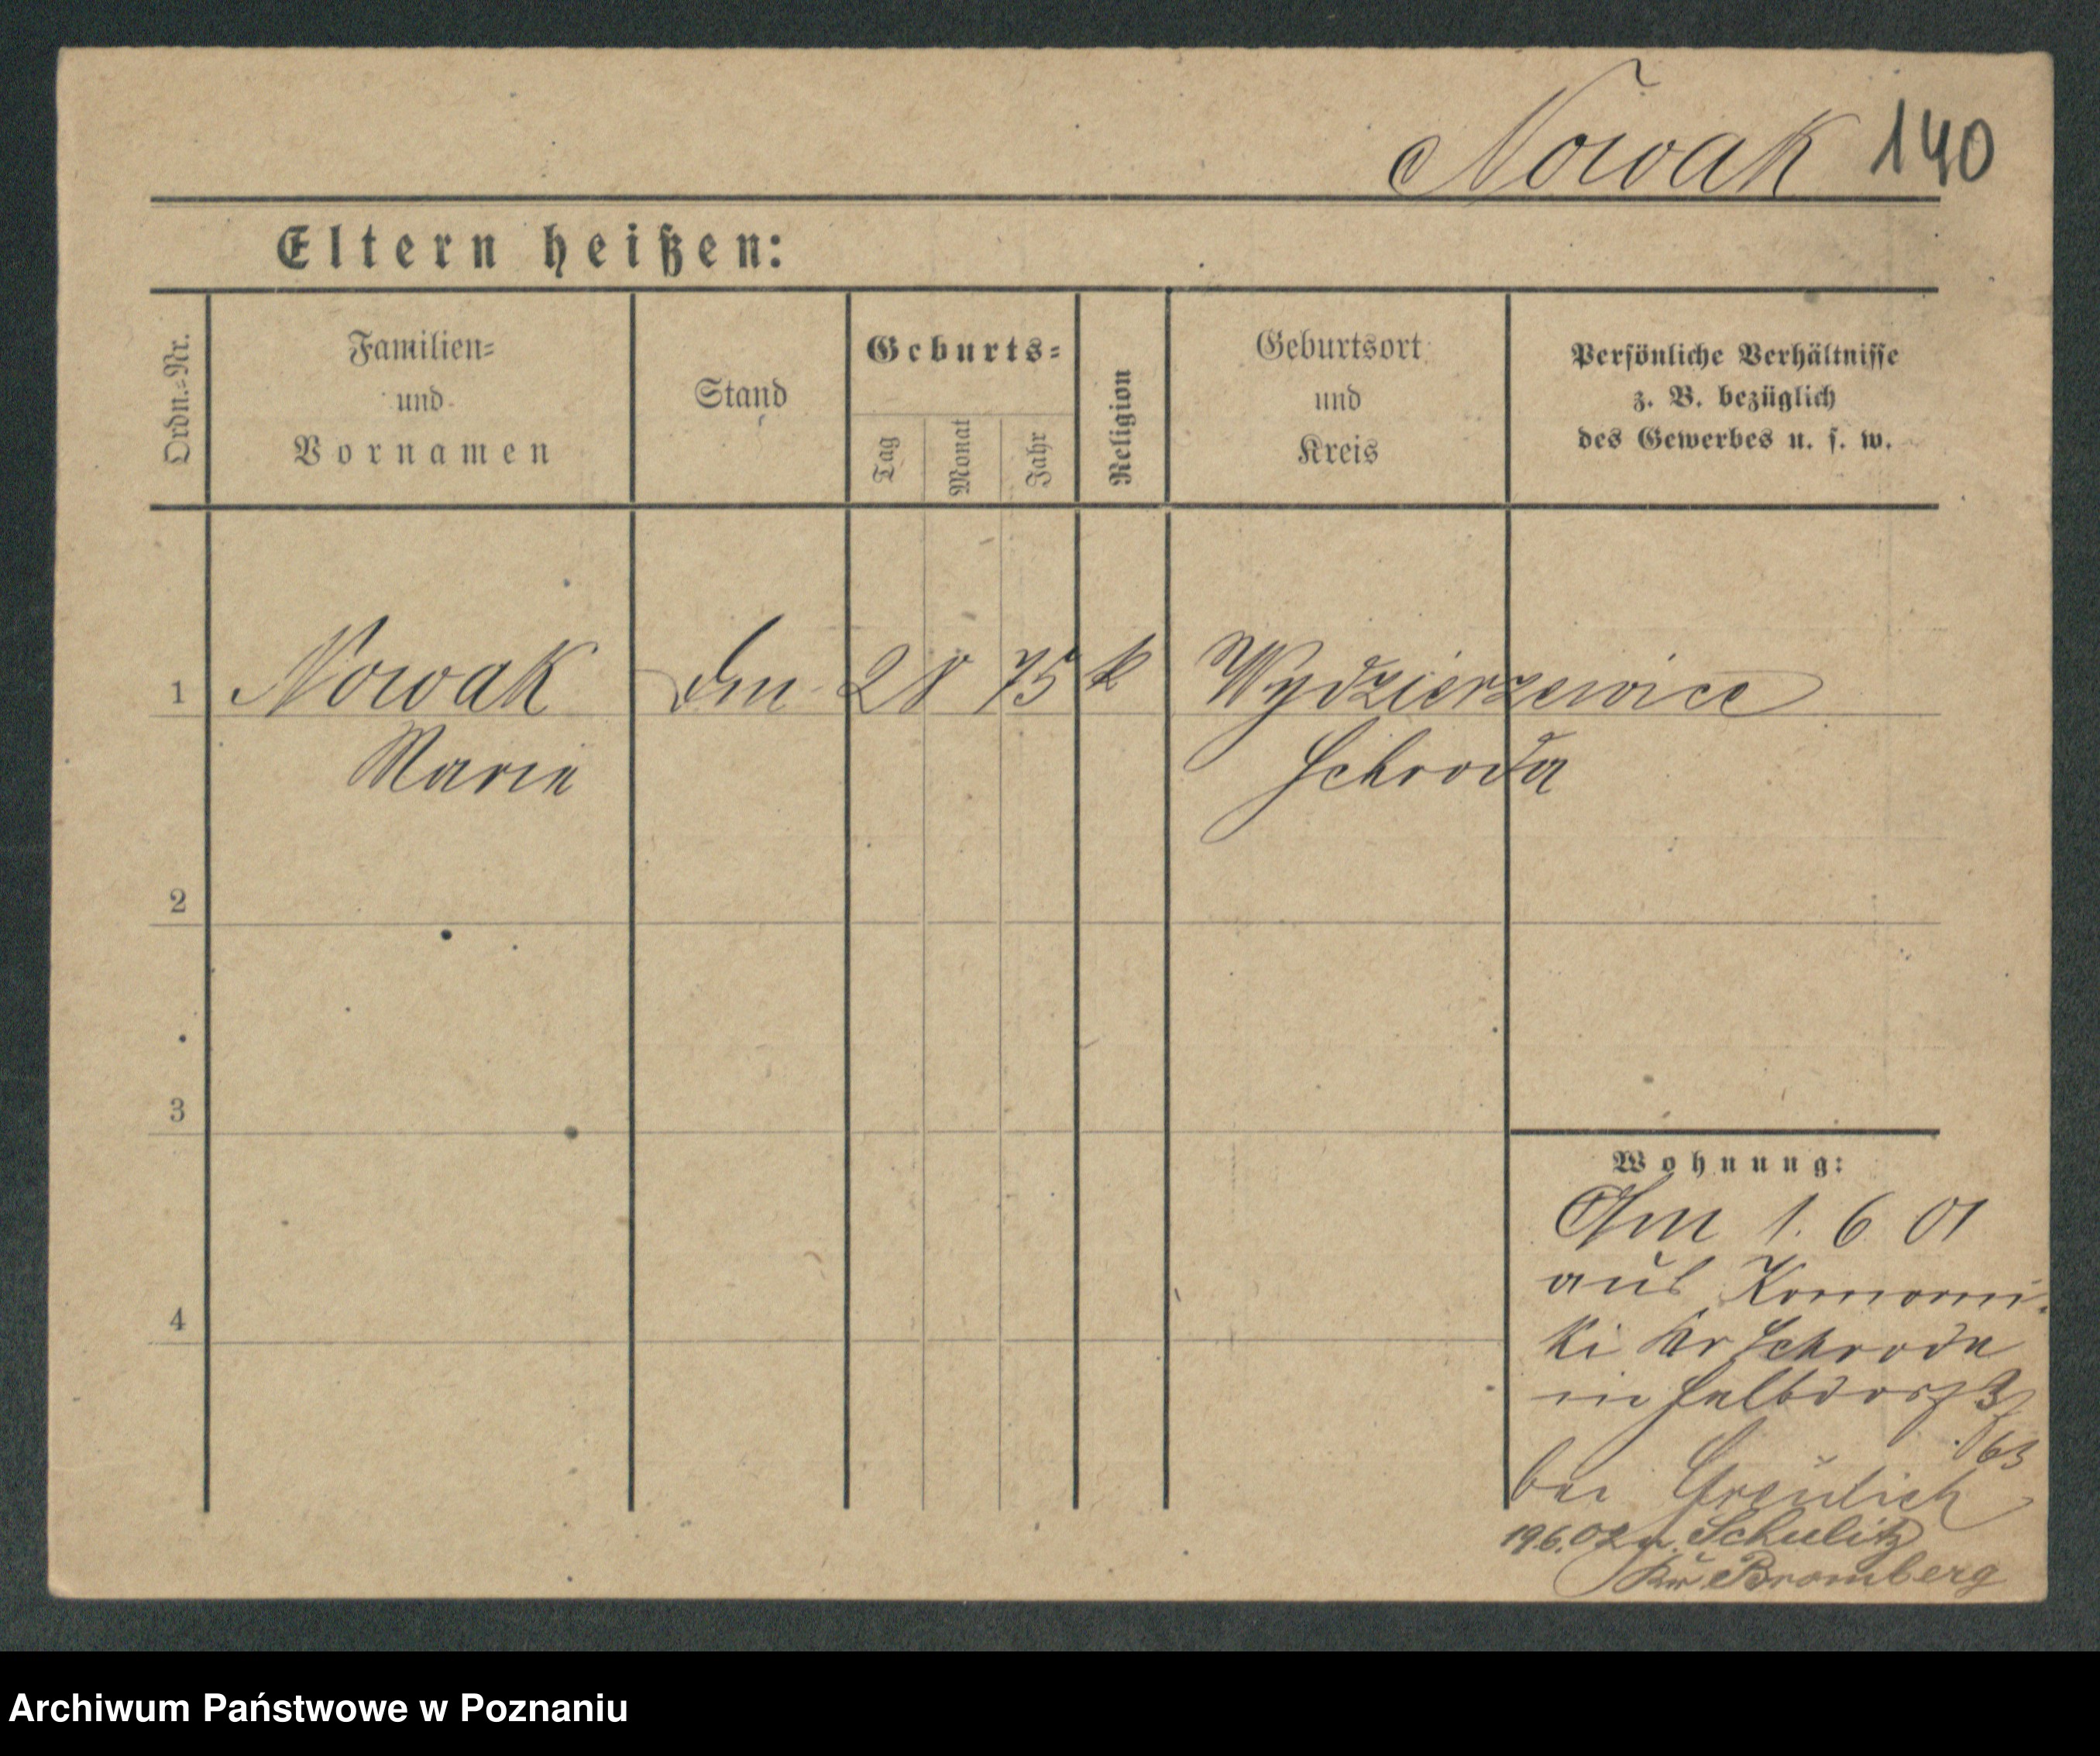 Nowak 140
Eltern heißen:
Ordn.-Nr.
Familien-
und
Vornamen
Stand
Geburts-
Tag
Monat
Jahr
Religion
Geburtsort
und
Kreis
Persönliche Verhältnisse
z. B. bezüglich
des Gewerbes u. s. w.
1 Nowak 28 75 k Wydzierzewice
Marie Schroda
2
3
4
Wohnung:
Am 1. 6 01
aus Komorni-
ki Kr Schroda
in
63
bei Greulich
19.6.02 n. Schulitz
Kr. Bromberg
Archiwum Państwowe w Poznaniu